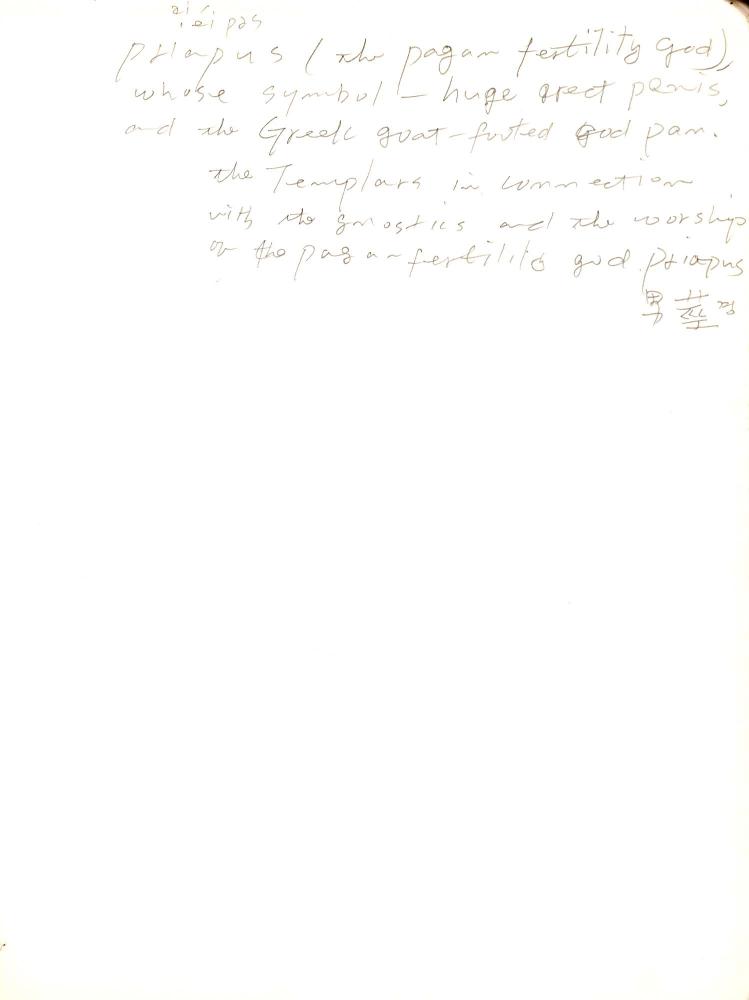 priapus (the pagan fertility god),
whose symbol – huge erect penis,
and the Greek goat-footed God pan.
the Templars in connection
with the gnostics and the worship
of the pagan fertility god priapus
男莖